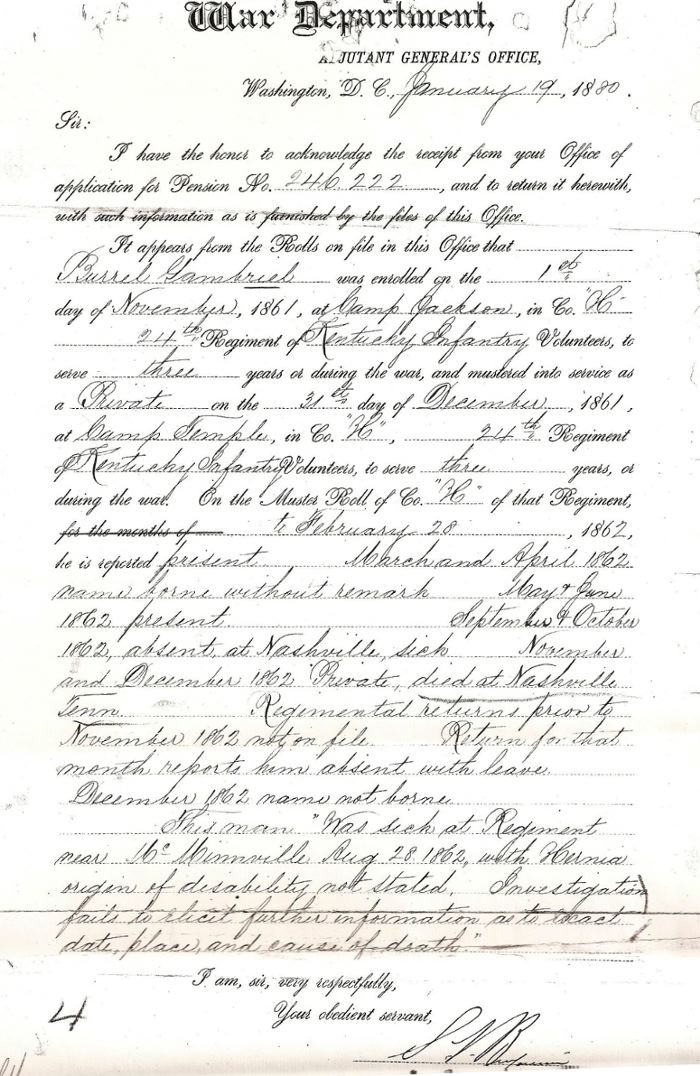 War Department,
ADJUTANT GENERAL'S OFFICE,
Washington, D. C., January 19, 1880.
Sir:
I have the honor to acknowledge the receipt from your Office of
application for Pension No. 246.222, and to return it herewith,
with such information as is furnished by the files of this Office.
It appears from the Rolls on file in this Office that
Burrel Gambriel was enrolled on the 1st
day of November, 1861, at Camp Jackson, in Co. "H"
24th Regiment of Kentucky Infantry Volunteers, to
serve three years or during the war, and mustered into service as
a Private on the 31st day of December, 1861,
at Camp Temple, in Co. "H", 24th Regiment
of Kentucky Infantry Volunteers, to serve three years, or
during the war. On the Muster Roll of Co. "H" of that Regiment,
for the months of to February 28, 1862,
he is reported present March and April 1862
name borne without remark May & June
1862 present. September & October
1862, absent, at Nashville, sick November
and December 1862 Private, died at Nashville
Tenn. Regimental returns prior to
November 1862 not on file Return for that
month reports him absent with leave.
December 1862 name not borne
This man "Was sick at Regiment
near Mc Minnville Aug 28 1862, with Hernia
origin of disability not stated. Investigation
fails to elicit further information as to exact
date, place, and cause of death."
I am, sir, very respectfully,
4 Your obedient servant,